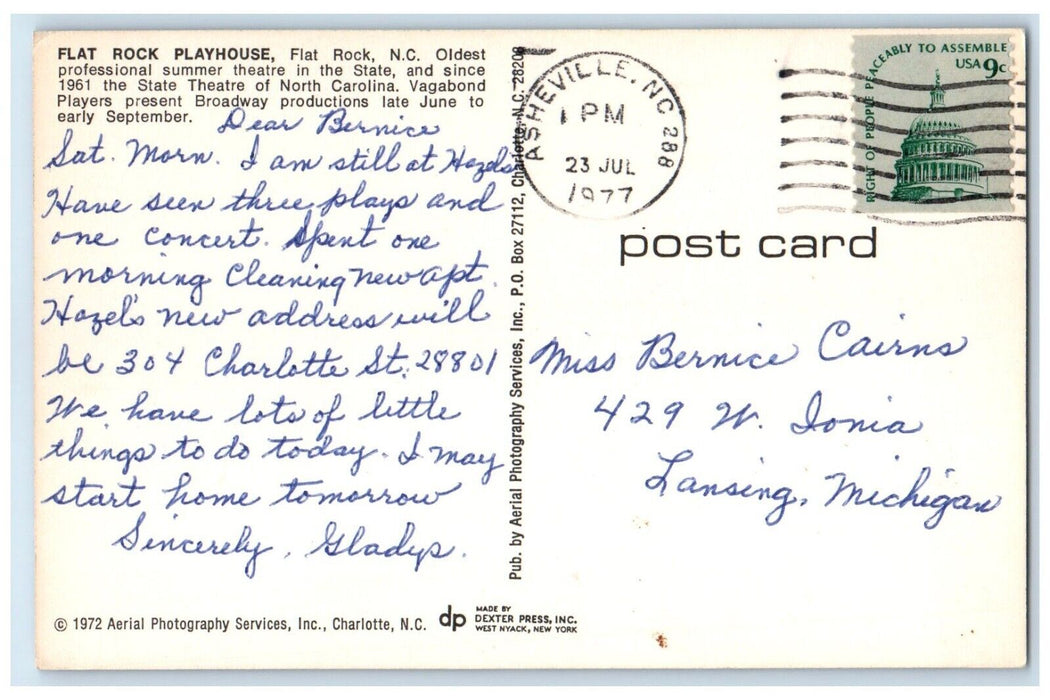 FLAT ROCK PLAYHOUSE, Flat Rock, N.C. Oldest
professional summer theatre in the State, and since
1961 the State Theatre of North Carolina. Vagabond
Players present Broadway productions late June to
early September.
Dear Bernice
Sat. Morn. I am still at Hazels
Have seen three plays and
one concert. Spent one
morning Cleaning New apt.
Hazel's new address will
be 304 Charlotte St. 28801
We have lots of little
things to do today. I may
start home tomorrow
Sincerely, Gladys.
© 1972 Aerial Photography Services, Inc., Charlotte, N.C.
dp
MADE BY
DEXTER PRESS, INC.
WEST NYACK, NEW YORK
Pub. by Aerial Photography Services, Inc., P.O. Box 27112, Charlotte, N.C. 28208
ASHEVILLE, NC 288
1 PM
23 JUL
1977
RIGHT OF PEOPLE PEACEABLY TO ASSEMBLE
USA 9c
post card
Miss Bernice Cairns
429 W. Ionia
Lansing, Michigan